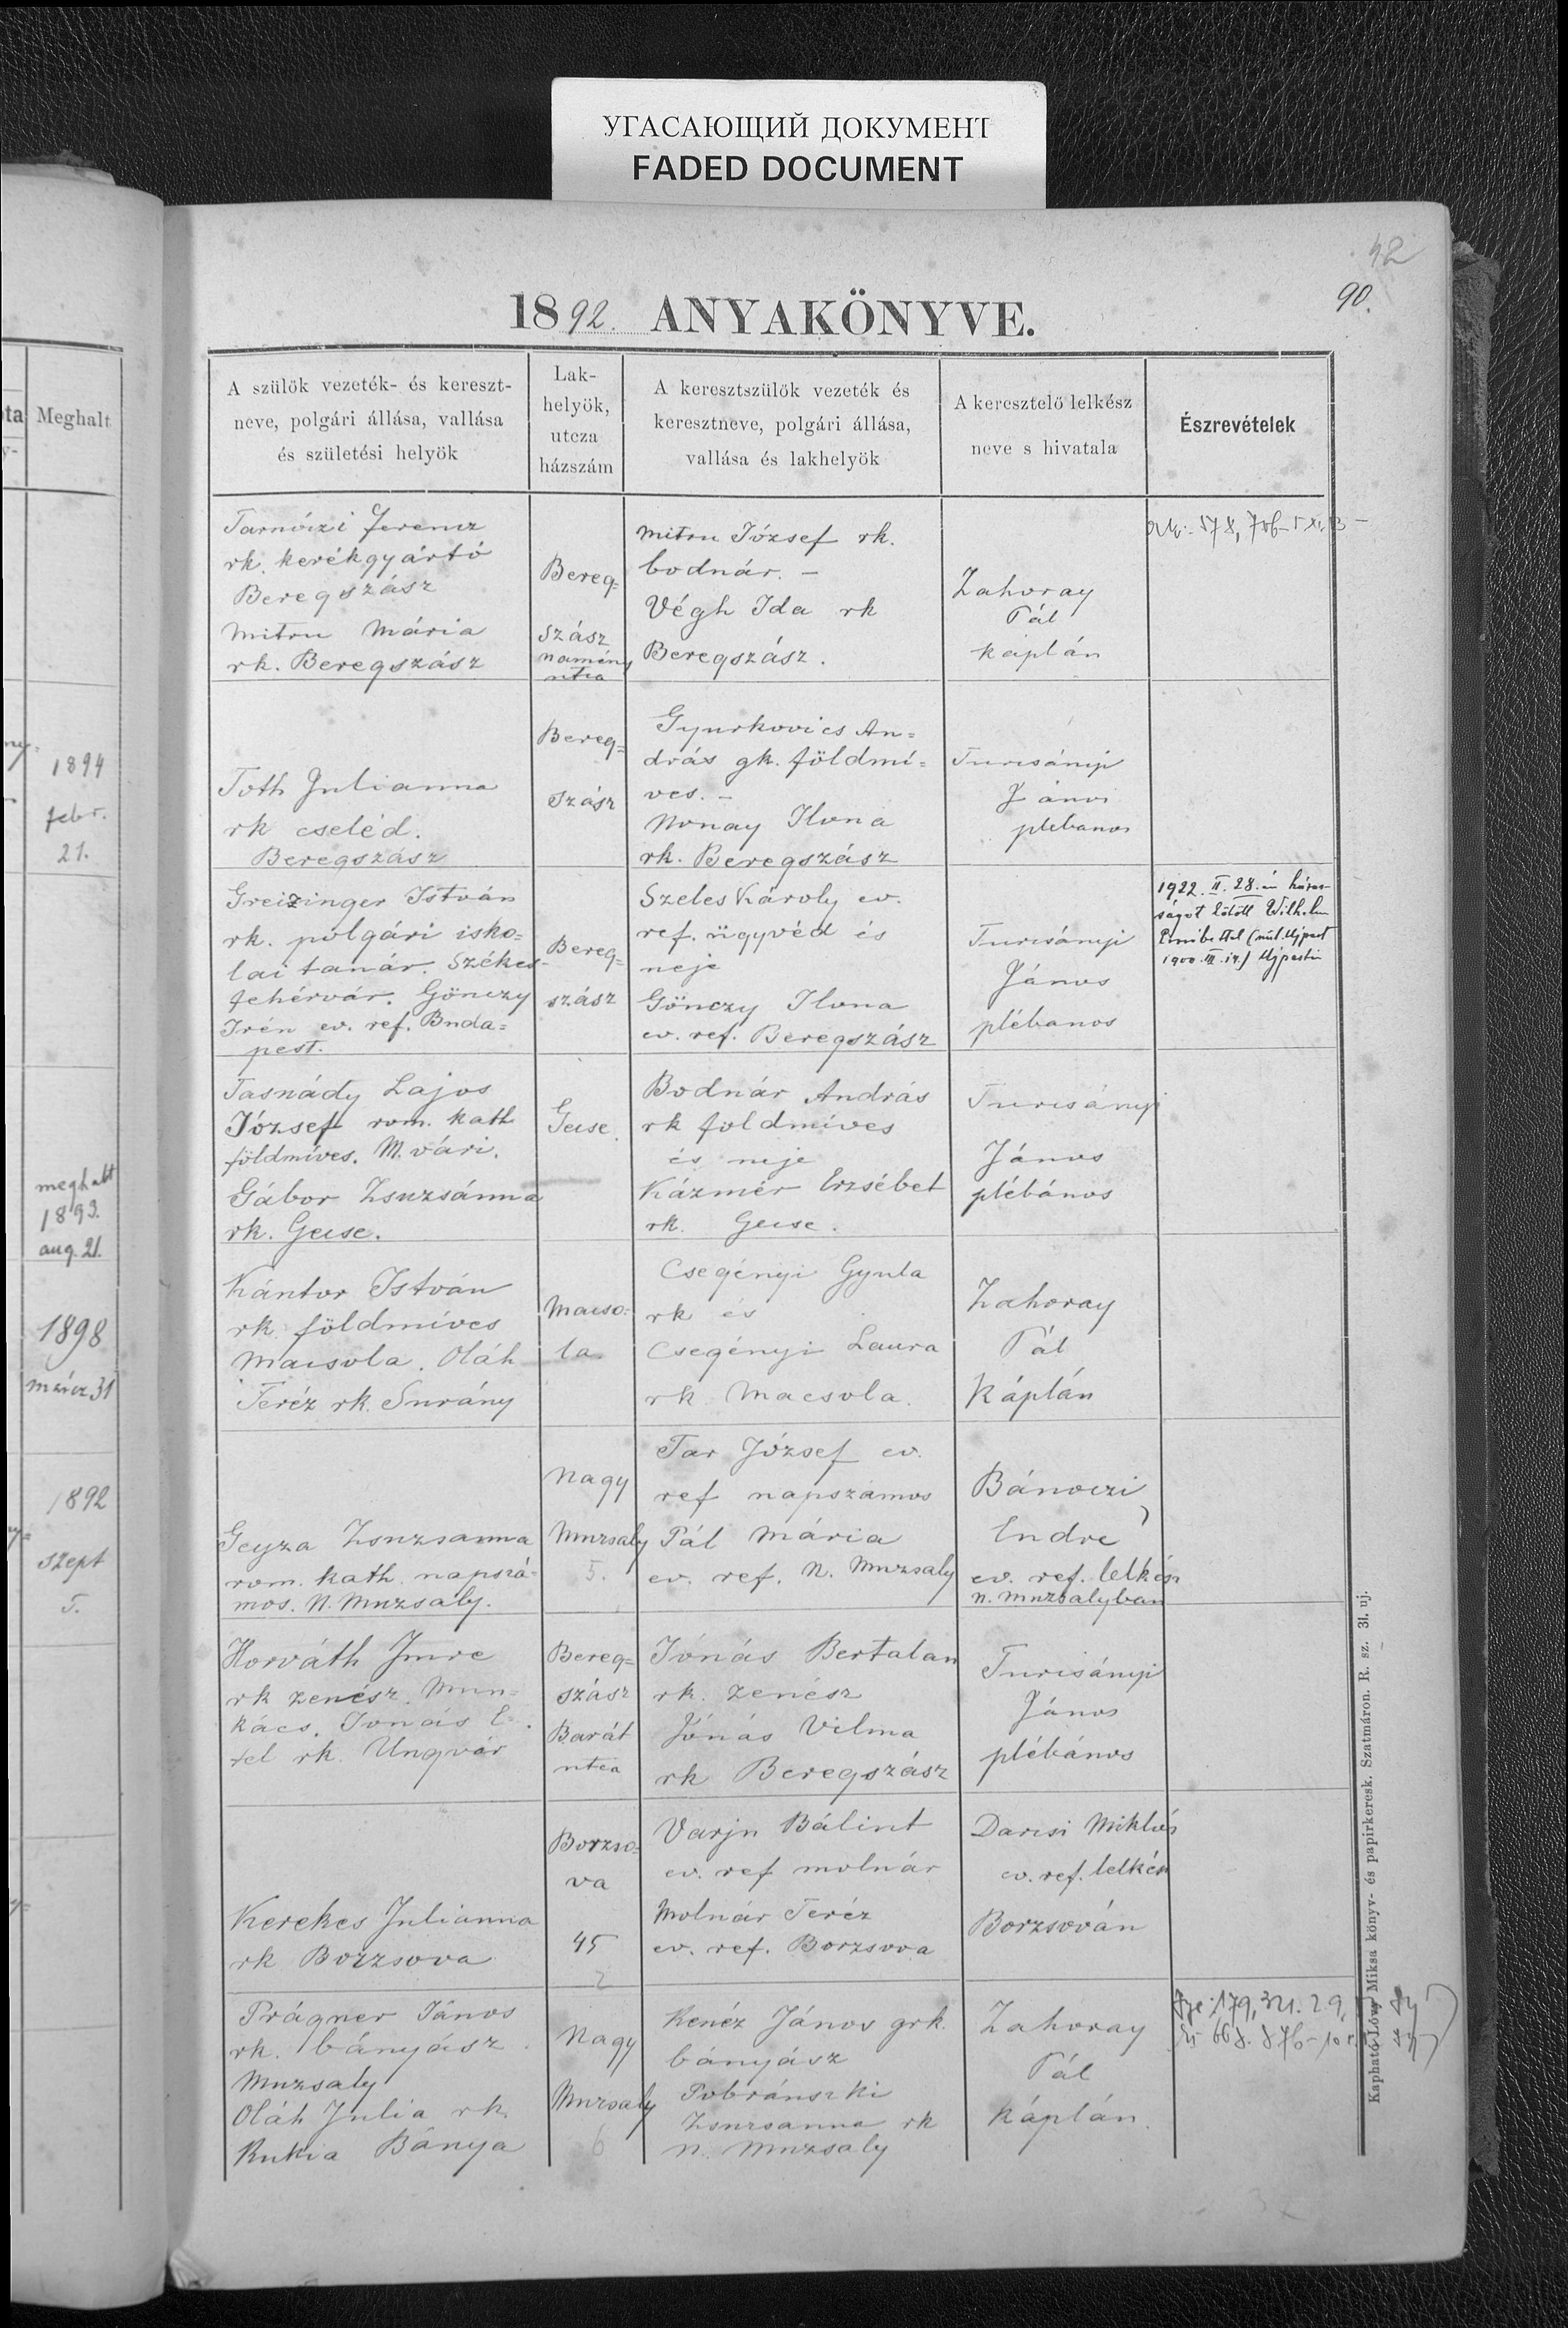 УГАСАЮЩИЙ ДОКУМЕНТ
FADED DOCUMENT
42
90.
1892. ANYAKÖNYVE.
Meghalt
1894
febr.
21.
meghalt
1893.
aug. 21.
1898
márcz 31
1892
szept
5.
A szülők vezeték- és kereszt-
neve, polgári állása, vallása
és születési helyök
Lak-
helyök,
utcza
házszám
A keresztszülők vezeték és
keresztneve, polgári állása,
vallása és lakhelyök
A keresztelő lelkész
neve s hivatala
Észrevételek
Tarnóczi Ferencz
rk. kerékgyártó
Beregszász
Mitru Mária
rk. Beregszász
Bereg=
szász
namény
utca
Mitru József rk.
bodnár. –
Végh Ida rk
Beregszász.
Zahoray
Pál
káplán
Toth Julianna
rk cseléd.
Beregszász
Bereg=
szász
Gyurkovics An=
drás gk. földmí=
ves. –
Monay Ilona
rk. Beregszász
Turcsányi
János
plebanos
Greizinger István
rk. polgári isko=
lai tanár. Székes-
fehérvár. Gönczy
Irén ev. ref. Buda=
pest.
Bereg=
szász
Szeles Károly ev.
ref. ügyvéd és
neje
Gönczy Ilona
ev. ref. Beregszász
Turcsányi
János
plébanos
1922. II. 28.-án házas-
ságot kötött Wilhelm
(szül. Ujpest
1900. III. 14.) Ujpesten
Tasnády Lajos
József rom. kath
földmíves. M. vári.
Gábor Zsuzsánna
rk. Gecse.
Gecse.
Bodnár András
rk foldmíves
és neje
Kázmér Erzsébet
rk. Gecse.
Turcsányi
János
plébános
Kántor István
rk. földmíves
Macsola. Oláh
Teréz rk. Surány
Macso=
la.
Csegényi Gyula
rk és
Csegényi Laura
rk. Macsola.
Zahoray
Pál
Káplán
Geyza Zsuzsanna
rom. kath. napszá-
mos. N. Muzsaly.
Nagy
Muzsaly
5.
Tar József ev.
ref napszamos
Pál Mária
ev. ref. N. Muzsaly
Bánoczi
Endre
ev. ref. lelkész
N. Muzsalyban
Horváth Imre
rk zenész. Mun=
kács. Jonás
rk. Ungvár
Bereg=
szász
Barát
utca
Jónás Bertalan
rk. zenész
Jónás Vilma
rk Beregszász
Turcsányi
János
plébános
Kerekes Julianna
rk Borzsova
Borzso=
va
45
2
Varju Bálint
ev. ref molnár
Molnár Teréz
ev. ref. Borzsova
Darcsi Miklós
ev. ref. lelkész
Borzsován
Prágner János
rk. bányász.
Muzsaly
Oláh Julia rk.
Bánya
Nagy
Muzsaly
6
Kenéz János grk.
bányász
Pobránszki
Zsuzsanna rk
N. Muzsaly
Zahoray
Pál
káplán.
Kapható Lőwy Miksa könyv- és papirkeresk. Szatmáron. R. sz. 31. uj.